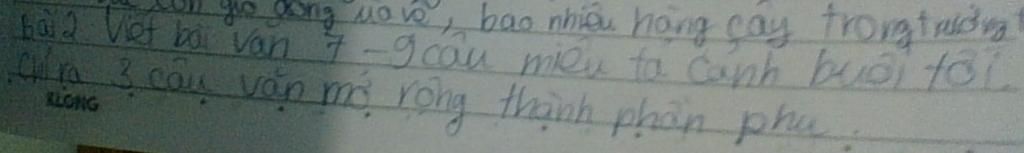 con gió đông ùa về, bao nhiêu hàng cây trong trường
bài 2 Viết bài văn 7 - 9 câu miêu tả cảnh buổi tối.
Chỉ ra 3 câu văn mở rộng thành phần phụ.
KLONG